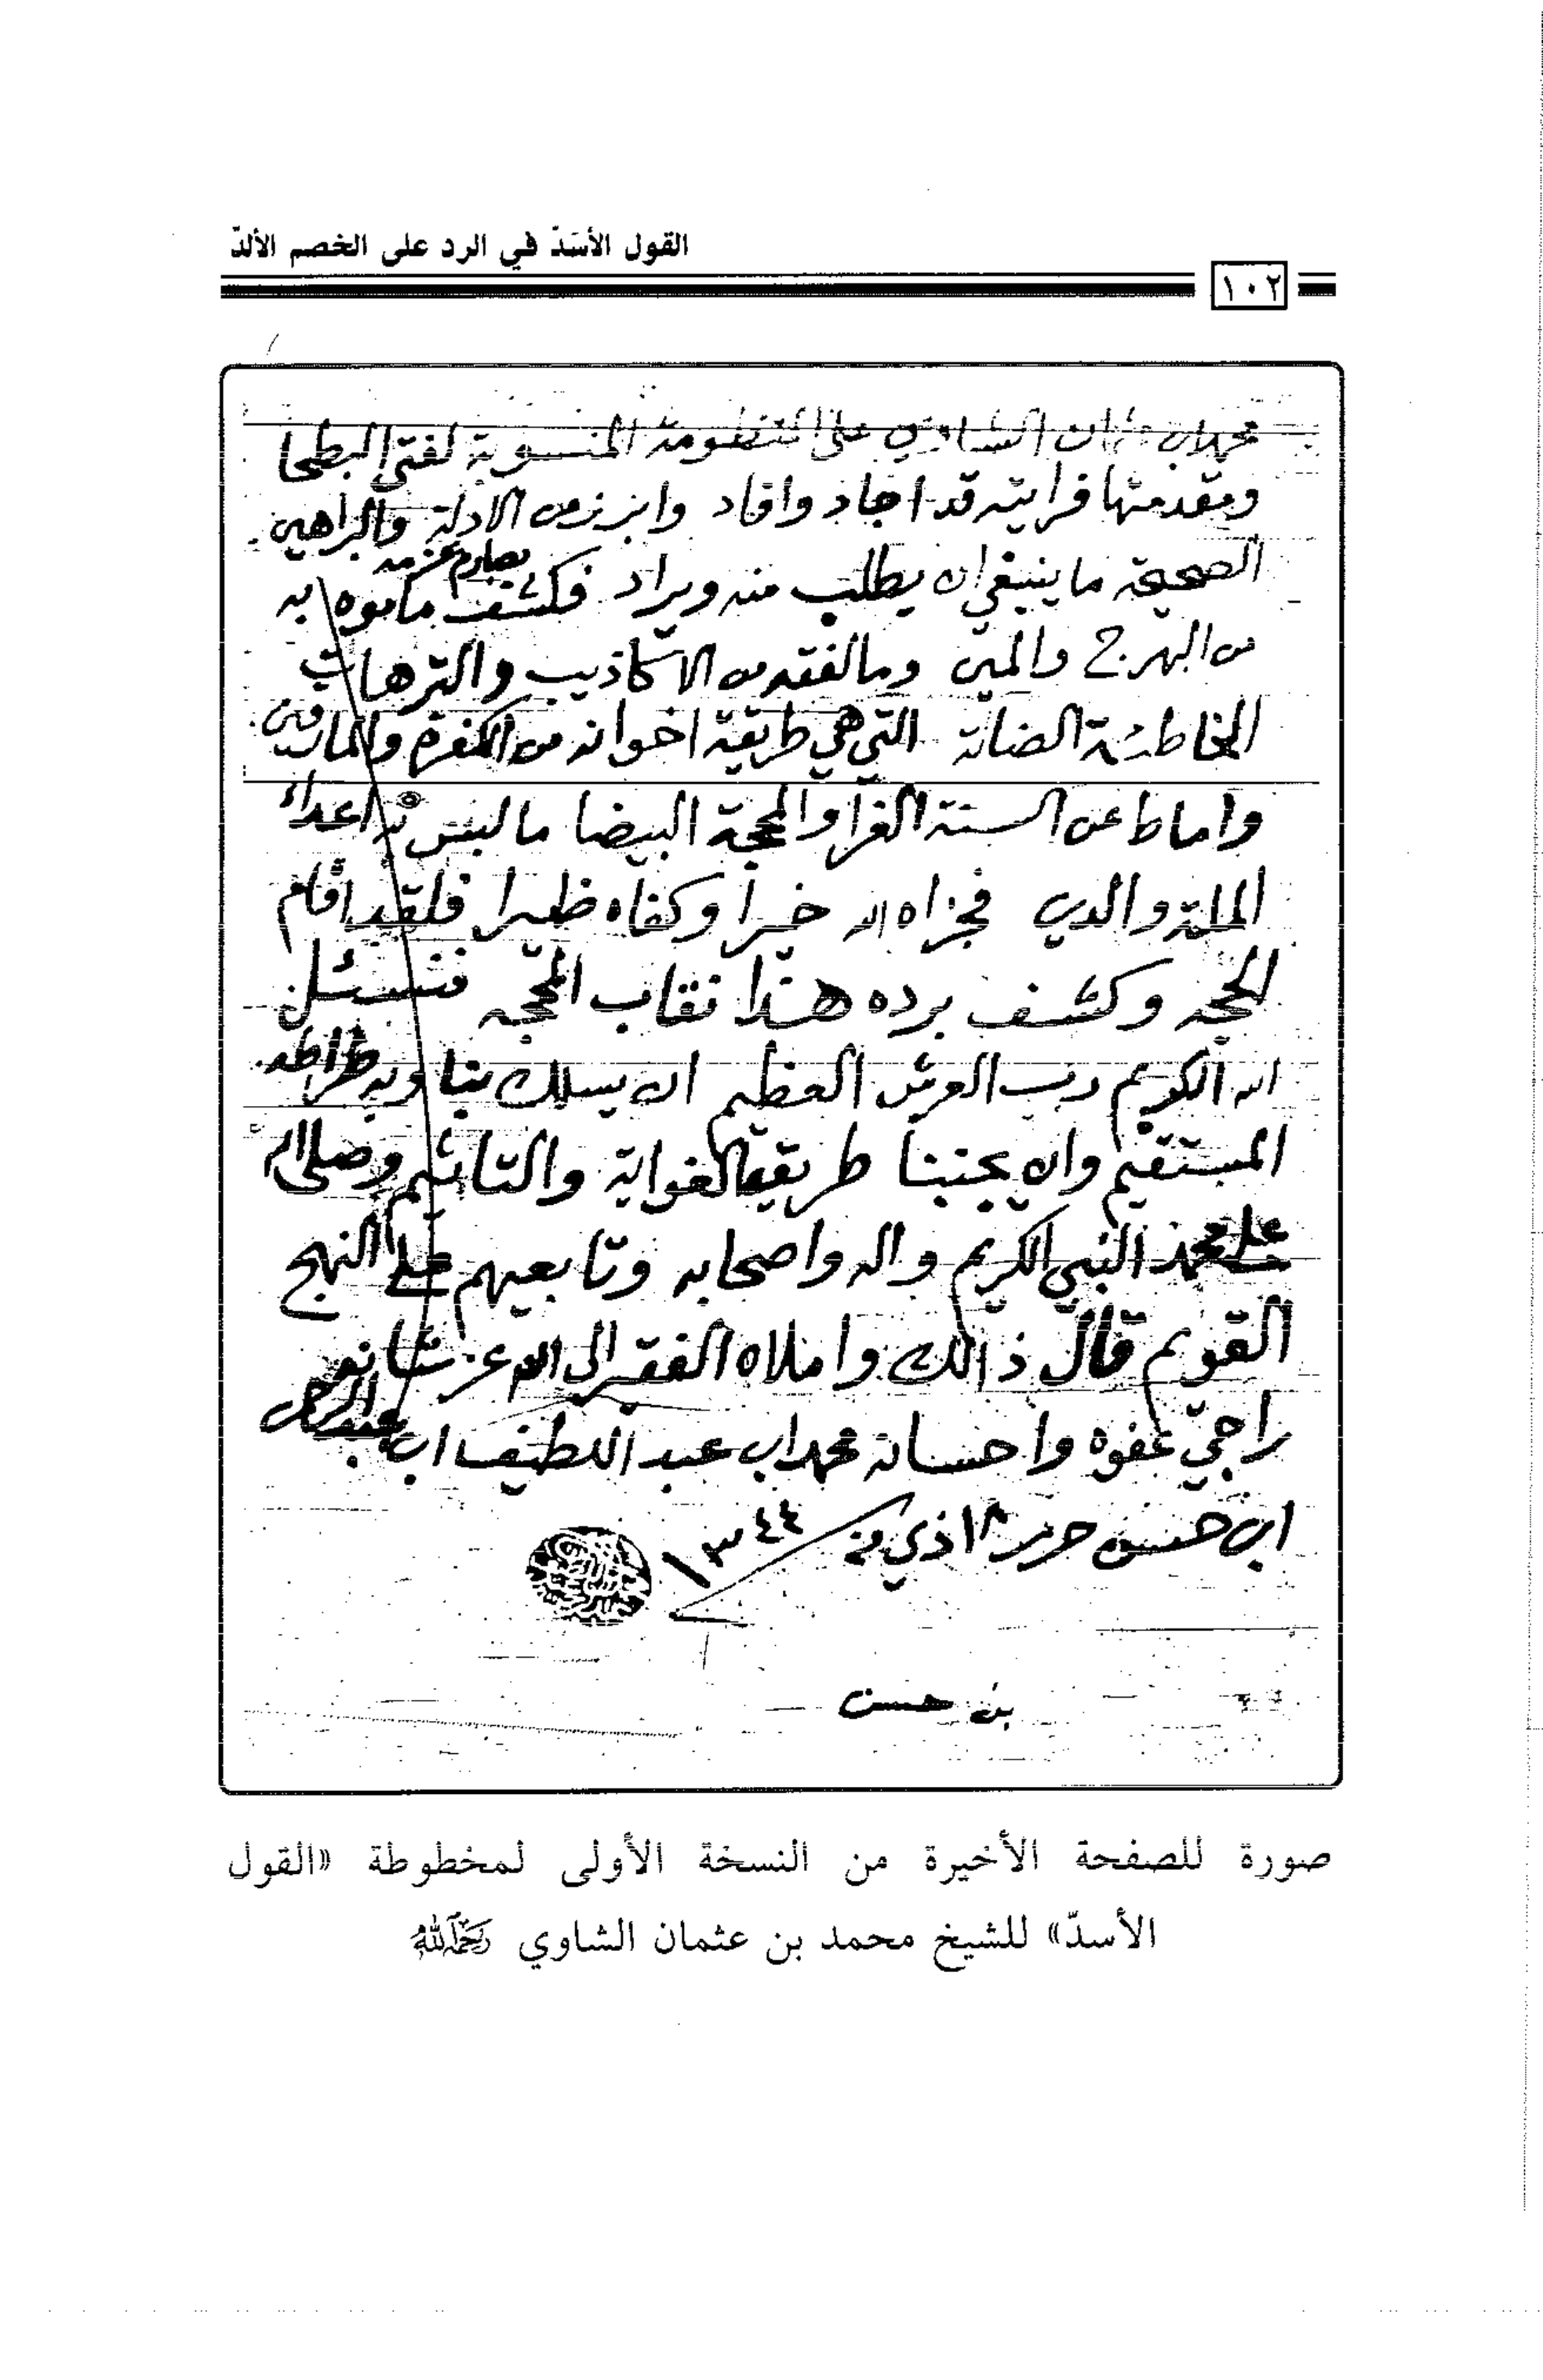 القول الأسَدّ في الرد على الخصم الألدّ
١٠٢
محمد ابن عثمان الشاوي على المنظومة المنسوبة لفتى البطحا
ومقدمتها فرايته قد اجاد وافاد وابرز من الادلة والبراهين
الصحيحة ما ينبغي ان يطلب منه ويراد فكشف بصارم عزمه ما موه به
من البهرج والمين وما لفقه من الاكاذيب والترهات
الخاطئة الضالة التي هي طريقة اخوانه من الكفرة والمارقين
واماط عن السنة الغرا والمحجة البيضا ما لبس به اعداء
الملة والدين فجزاه الله خيرا وكفاه ظيرا فلقد اقام
الحجه وكشف برده هذا نقاب المحجه فنسئل
الله الكريم رب العرش العظيم ان يسلك بنا وبه صراطه
المستقيم وان يجنبنا طريقة الغواية والتاثيم وصلى الله
على محمد النبي الكريم واله واصحابه وتابعيهم على النهج
القويم قال ذالك واملاه الفقير الى الله عز شانه
راجي عفوه واحسانه محمد ابن عبد اللطيف ابن عبد الرحمن
ابن حسن حرر ١٨ ذي ١٣٤٤
بن حسن
صورة للصفحة الأخيرة من النسخة الأولى لمخطوطة «القول
الأسدّ» للشيخ محمد بن عثمان الشاوي رحمه الله